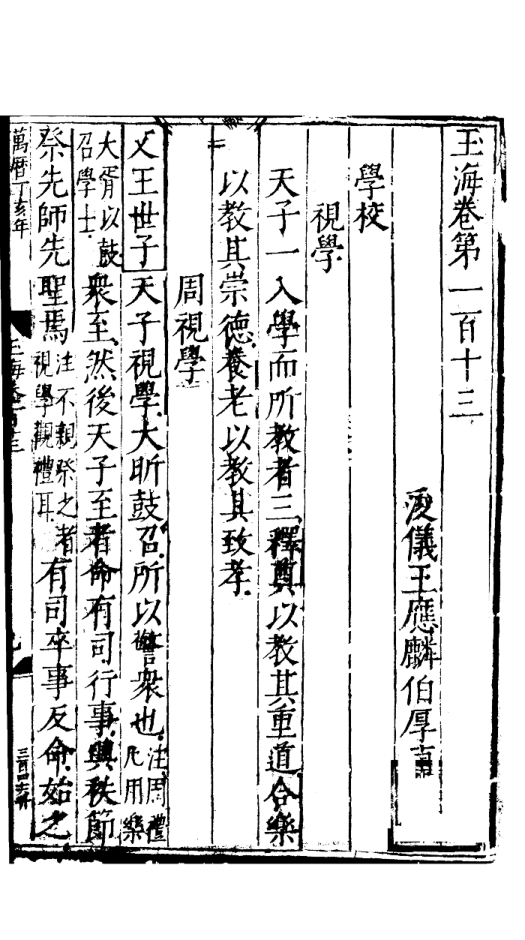 玉海卷第一百十三
浚儀王應麟伯厚
學校
視學
天子一入學而所教者三釋奠以教其重道合樂
以教其崇德養老以教其致孝
周視學
文王世子天子視學大昕鼓召所以警衆也注周禮凡用樂
大胥以鼓召學士衆至然後天子至者命有司行事興秩節
祭先師先聖焉注不親祭之者視學觀禮耳有司卒事反命始之
萬曆丁亥年